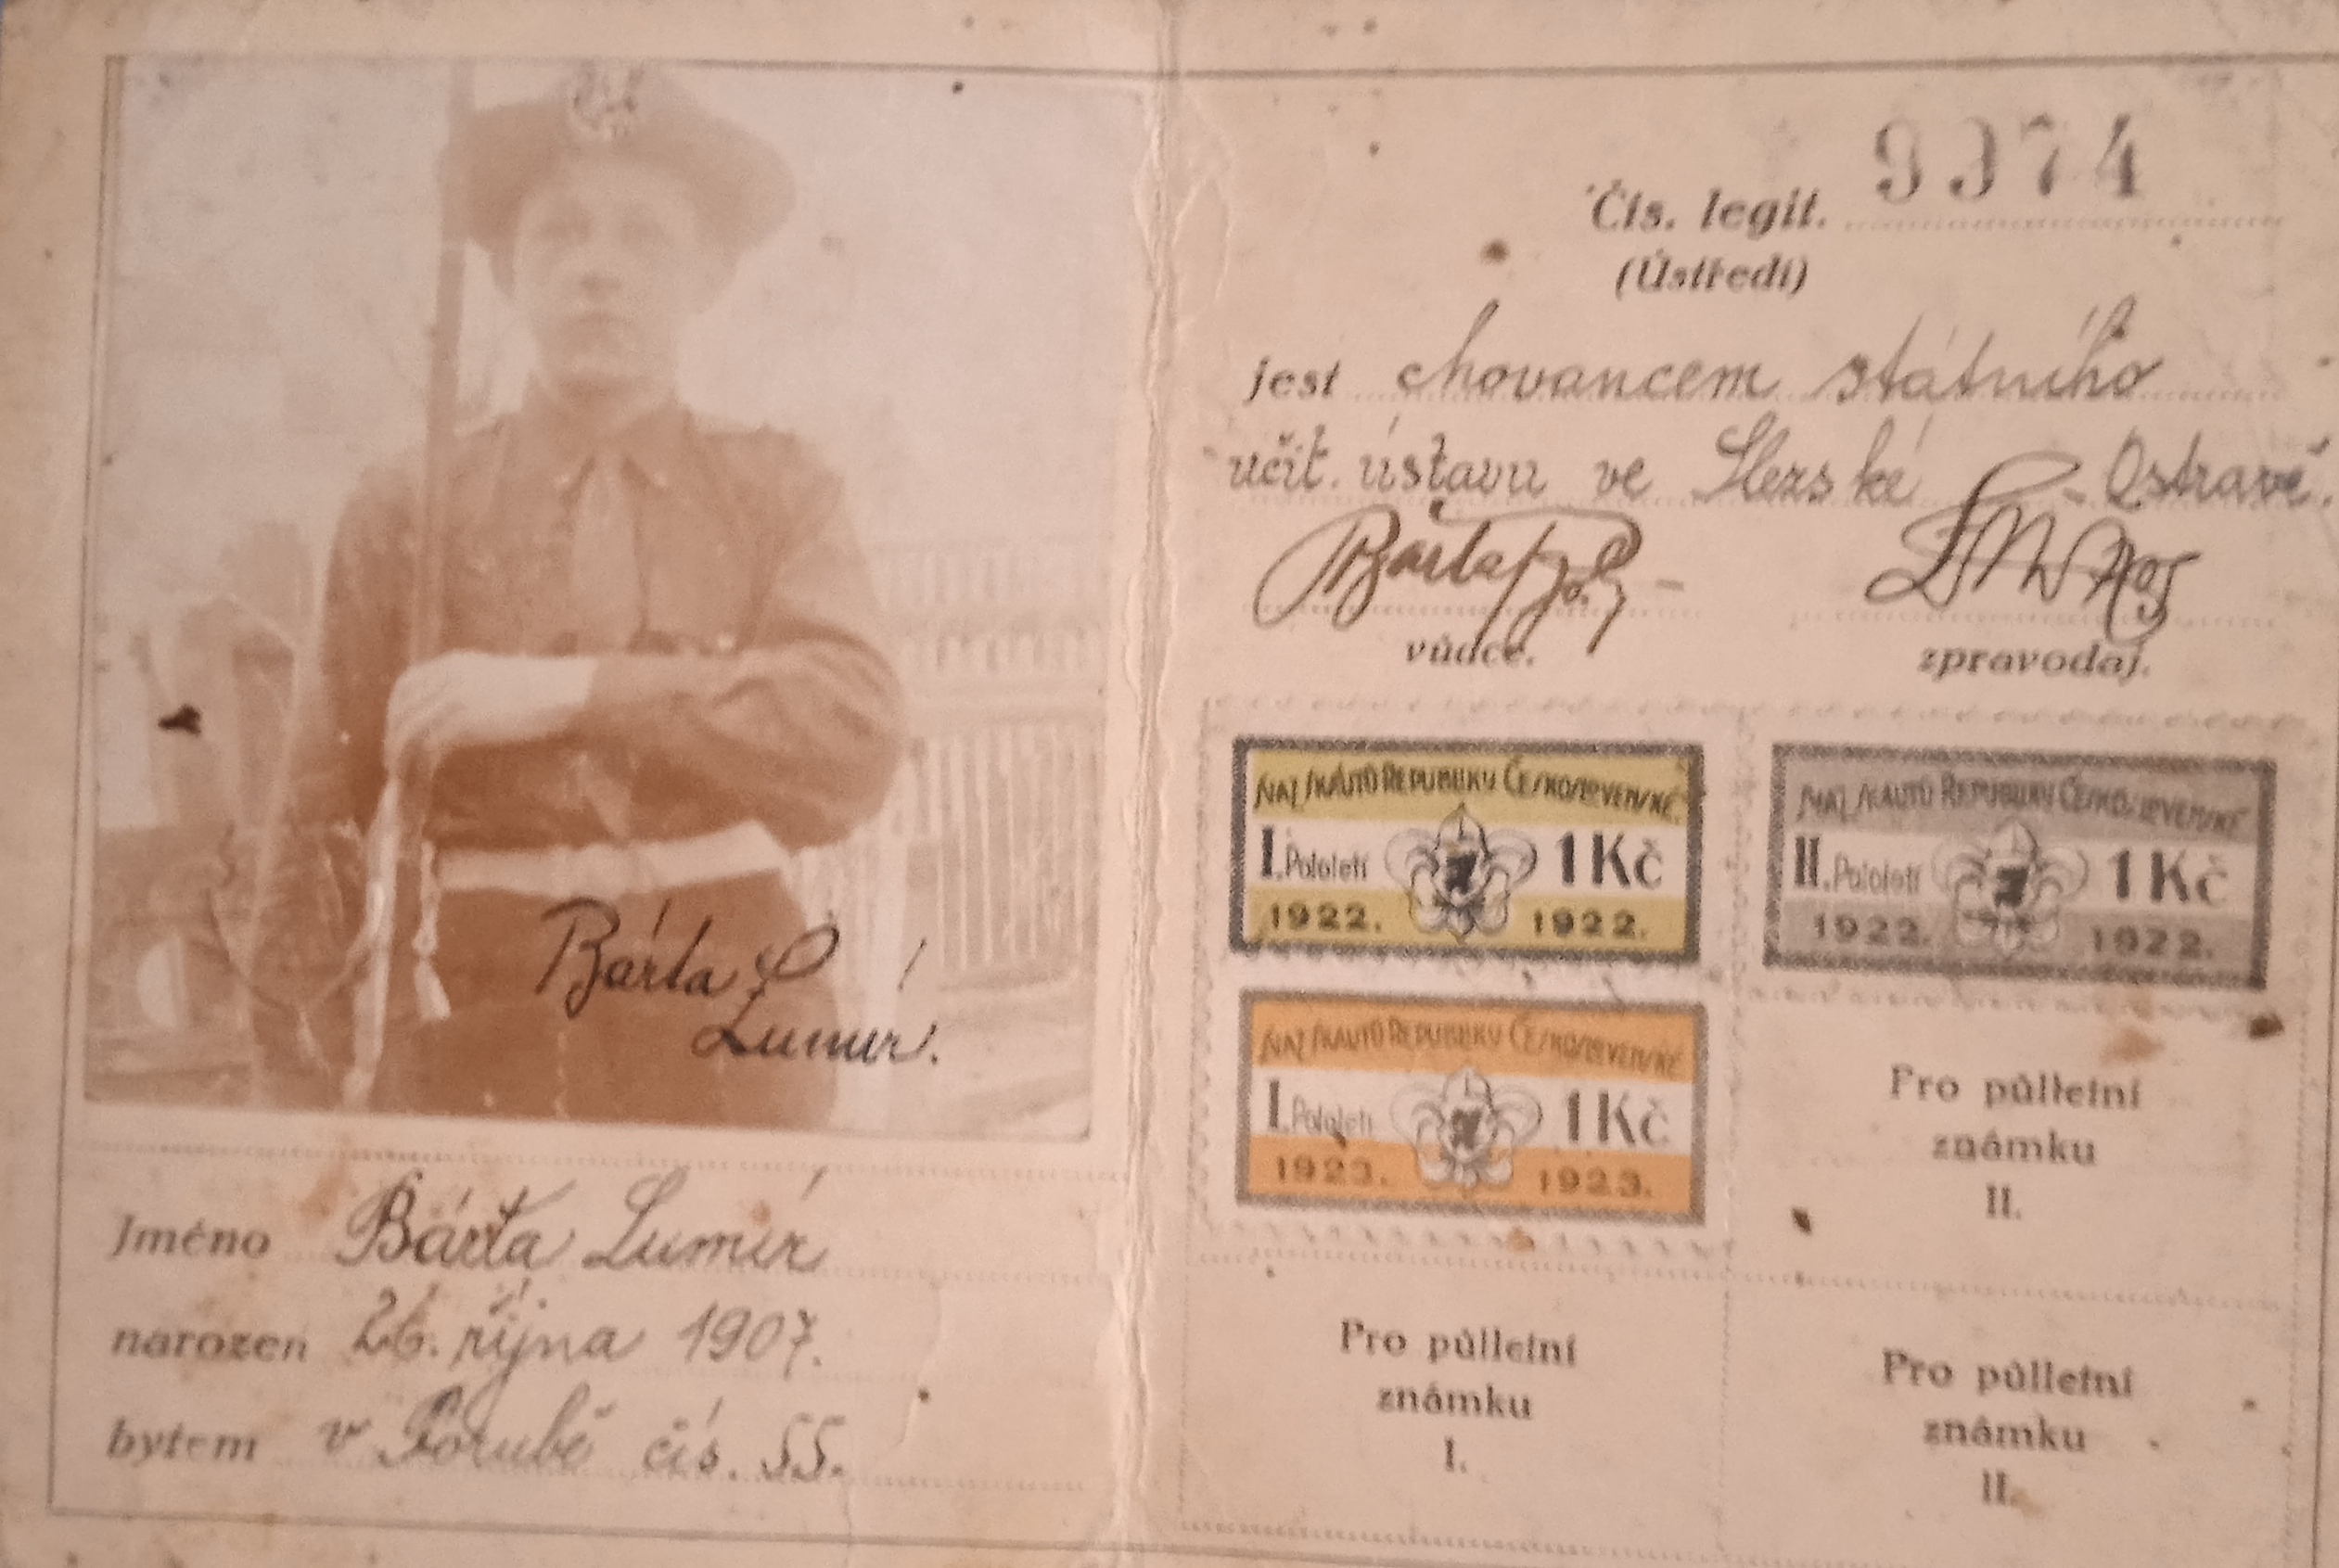 Bárta
Lumír.
Jméno Bárta Lumír
narozen 26. října 1907.
bytem v Porubě čís. 55.
Čís. legit. 9974
(Ústředí)
jest chovancem státního
učit. ústavu ve Slezské - Ostravě.
Bárta
vůdce. zpravodaj.
SVAZ SKAUTŮ REPUBLIKY ČESKOSLOVENSKÉ
I. Pololetí 1 Kč
1922. 1922.
SVAZ SKAUTŮ REPUBLIKY ČESKOSLOVENSKÉ
II. Pololetí 1 Kč
1922. 1922.
SVAZ SKAUTŮ REPUBLIKY ČESKOSLOVENSKÉ
I. Pololetí 1 Kč
1923. 1923.
Pro půlletní
známku
II.
Pro půlletní
známku
I.
Pro půlletní
známku
II.